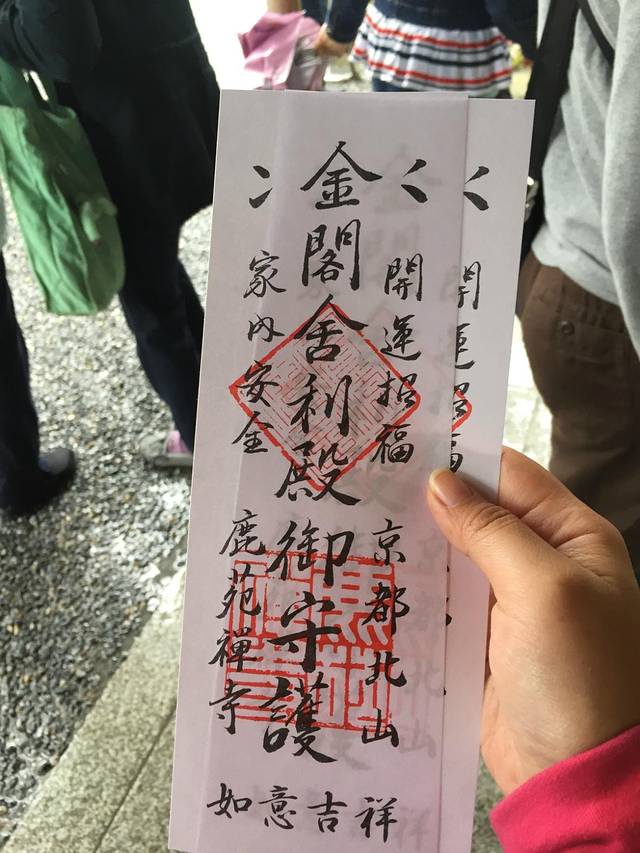 開運招福
開運招福
京都北山
金閣舍利殿御守護
家内安全
鹿苑禪寺
如意吉祥